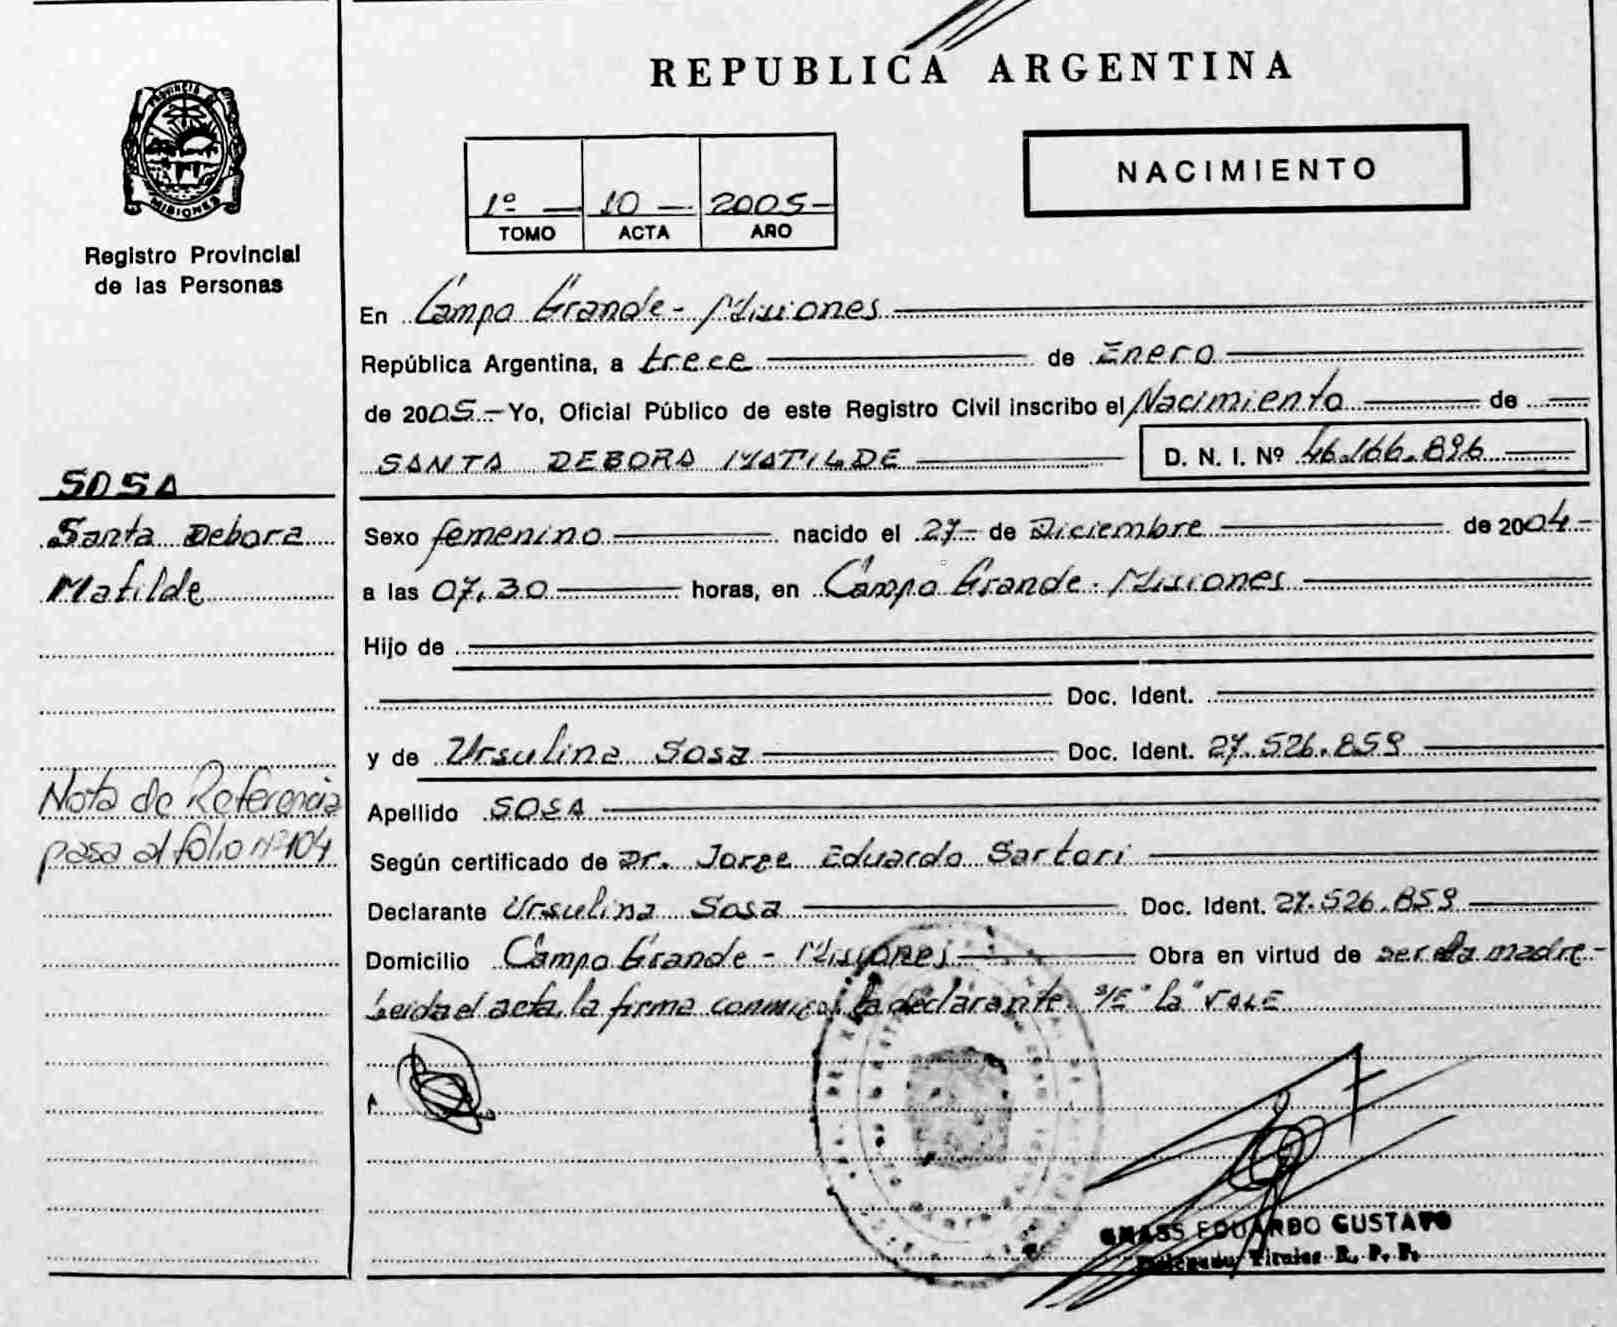 REPUBLICA ARGENTINA
PROVINCIA DE
MISIONES
Registro Provincial
de las Personas
1º — 10 — 2005 –
TOMO ACTA AÑO
NACIMIENTO
En Campo Grande - Misiones
República Argentina, a trece de Enero
de 2005.- Yo, Oficial Público de este Registro Civil inscribo el Nacimiento de
SANTA DEBORA MATILDE D. N. I. Nº 46.166.896
SOSA
Santa Debora
Matilde
Sexo femenino nacido el 27 - de Diciembre de 2004 -
a las 07,30 horas, en Campo Grande - Misiones
Hijo de
Doc. Ident.
y de Ursulina Sosa Doc. Ident. 27.526.859
Nota de Referencia
pasa al folio Nº 104
Apellido SOSA
Según certificado de Dr. Jorge Eduardo Sartori
Declarante Ursulina Sosa Doc. Ident. 27.526.859
Domicilio Campo Grande - Misiones Obra en virtud de ser la madre -
Leida el acta, la firma conmigo, la declarante. S/E "la" VALE
EDUARDO GUSTAVO
Titular R. P. P.